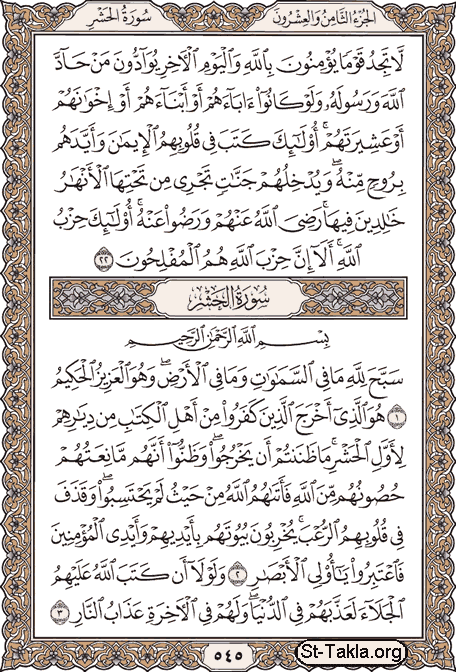 سُورَةُ الحَشْرِ
الجُزْءُ الثَّامِنُ وَالعِشْرُونَ
لَّا تَجِدُ قَوْمًا يُؤْمِنُونَ بِٱللَّهِ وَٱلْيَوْمِ ٱلْءَاخِرِ يُوَآدُّونَ مَنْ حَآدَّ
ٱللَّهَ وَرَسُولَهُۥ وَلَوْ كَانُوٓا۟ ءَابَآءَهُمْ أَوْ أَبْنَآءَهُمْ أَوْ إِخْوَٰنَهُمْ
أَوْ عَشِيرَتَهُمْ ۚ أُو۟لَٰٓئِكَ كَتَبَ فِى قُلُوبِهِمُ ٱلْإِيمَٰنَ وَأَيَّدَهُم
بِرُوحٍ مِّنْهُ ۖ وَيُدْخِلُهُمْ جَنَّٰتٍ تَجْرِى مِن تَحْتِهَا ٱلْأَنْهَٰرُ
خَٰلِدِينَ فِيهَا ۚ رَضِىَ ٱللَّهُ عَنْهُمْ وَرَضُوا۟ عَنْهُ ۚ أُو۟لَٰٓئِكَ حِزْبُ
ٱللَّهِ ۚ أَلَآ إِنَّ حِزْبَ ٱللَّهِ هُمُ ٱلْمُفْلِحُونَ ٢٢
سُورَةُ الحَشْرِ
بِسْمِ ٱللَّهِ ٱلرَّحْمَٰنِ ٱلرَّحِيمِ
سَبَّحَ لِلَّهِ مَا فِى ٱلسَّمَٰوَٰتِ وَمَا فِى ٱلْأَرْضِ ۖ وَهُوَ ٱلْعَزِيزُ ٱلْحَكِيمُ
١ هُوَ ٱلَّذِىٓ أَخْرَجَ ٱلَّذِينَ كَفَرُوا۟ مِنْ أَهْلِ ٱلْكِتَٰبِ مِن دِيَٰرِهِمْ
لِأَوَّلِ ٱلْحَشْرِ ۚ مَا ظَنَنتُمْ أَن يَخْرُجُوا۟ ۖ وَظَنُّوٓا۟ أَنَّهُم مَّانِعَتُهُمْ
حُصُونُهُم مِّنَ ٱللَّهِ فَأَتَىٰهُمُ ٱللَّهُ مِنْ حَيْثُ لَمْ يَحْتَسِبُوا۟ ۖ وَقَذَفَ
فِى قُلُوبِهِمُ ٱلرُّعْبَ ۚ يُخْرِبُونَ بُيُوتَهُم بِأَيْدِيهِمْ وَأَيْدِى ٱلْمُؤْمِنِينَ
فَٱعْتَبِرُوا۟ يَٰٓأُو۟لِى ٱلْأَبْصَٰرِ ٢ وَلَوْلَآ أَن كَتَبَ ٱللَّهُ عَلَيْهِمُ
ٱلْجَلَآءَ لَعَذَّبَهُمْ فِى ٱلدُّنْيَا ۖ وَلَهُمْ فِى ٱلْءَاخِرَةِ عَذَابُ ٱلنَّارِ ٣
٥٤٥
St-Takla.org